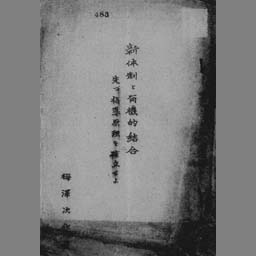 483
新体制と有機的結合
先づ指導原理を確立せよ
梅澤次郎